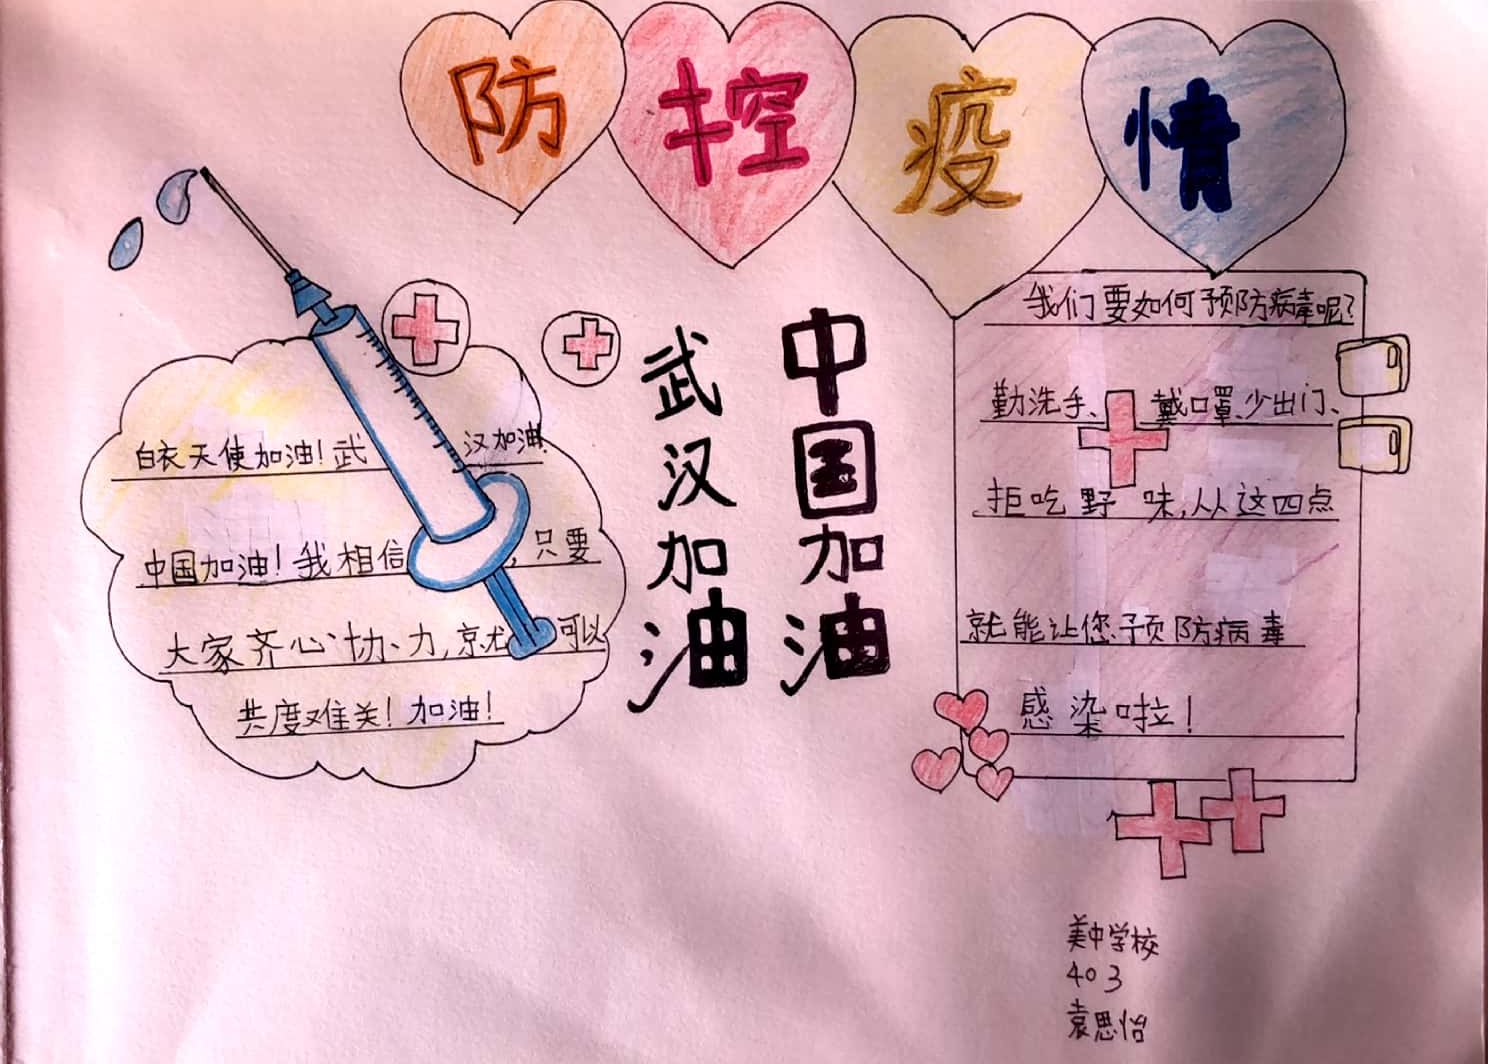 防控疫情
白衣天使加油！武汉加油！
中国加油！我相信，只要
大家齐心协力，就可以
共度难关！加油！
武汉加油
中国加油
我们要如何预防病毒呢？
勤洗手、戴口罩、少出门、
拒吃野味，从这四点
就能让您预防病毒
感染啦！
美中学校
403
袁思怡